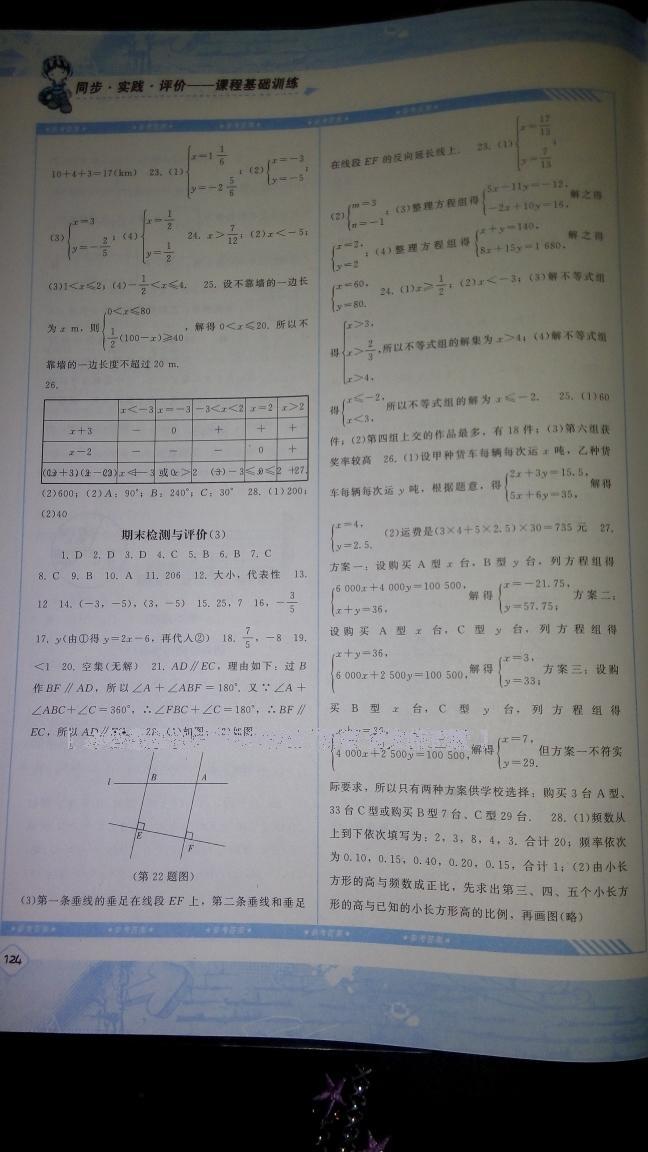 同步·实践·评价——课程基础训练
★参考答案★ ★参考答案★ ★参考答案★ ★参考答案★
10+4+3=17(km) 23. (1){x=1 1/6 y=-2 5/6;(2){x=-3 y=-5;
(3){x=3 y=-2/5;(4){x=1/2 y=1/2 24. x>7/12;(2)x<-5;
(3)1<x≤2;(4)-1/2<x≤4. 25. 设不靠墙的一边长
为 x m, 则{0<x≤80 1/2(100-x)≥40, 解得 0<x≤20. 所以不
靠墙的一边长度不超过 20 m.
26.
x<-3 x=-3 -3<x<2 x=2 x>2
x+3 - 0 + + +
x-2 - - - 0 +
(2)600;(2)A:90°;B:240°;C:30° 28. (1)200;
(2)40
期末检测与评价(3)
1. D 2. D 3. D 4. C 5. B 6. B 7. C
8. C 9. B 10. A 11. 206 12. 大小,代表性 13.
12 14. (-3,-5),(3,-5) 15. 25,7 16. -3/5
17. y(由①得 y=2x-6,再代入②) 18. 7/5,-8 19.
<1 20. 空集(无解) 21. AD∥EC,理由如下:过 B
作 BF∥AD,所以∠A+∠ABF=180°. 又∵∠A+
∠ABC+∠C=360°,∴∠FBC+∠C=180°,∴BF∥
EC,所以 AD∥
l B A
E F
(第 22 题图)
(3)第一条垂线的垂足在线段 EF 上,第二条垂线和垂足
★参考答案★ ★参考答案★ ★参考答案★ ★参考答案★ ★参考答案★
124
在线段 EF 的反向延长线上. 23. (1){x=17/13 y=7/13;
(2){m=3 n=-1;(3)整理方程组得{5x-11y=-12, -2x+10y=16, 解之得
{x=2, y=2;(4)整理方程组得{x+y=140, 8x+15y=1 680, 解之得
{x=60, y=80. 24. (1)x≥1/2;(2)x<-3;(3)解不等式组
得{x>3, x>2/3, x>4, 所以不等式组的解集为 x>4;(4)解不等式组
得{x≤-2, x<3, 所以不等式组的解为 x≤-2. 25. (1)60
件;(2)第四组上交的作品最多,有 18 件;(3)第六组获
奖率较高 26. (1)设甲种货车每辆每次运 x 吨,乙种货
车每辆每次运 y 吨,根据题意,得{2x+3y=15.5, 5x+6y=35, 解得
{x=4, y=2.5. (2)运费是(3×4+5×2.5)×30=735 元 27.
方案一:设购买 A 型 x 台,B 型 y 台,列方程组得
{6 000x+4 000y=100 500, x+y=36, 解得{x=-21.75, y=57.75; 方案二:
设购买 A 型 x 台,C 型 y 台,列方程组得
{x+y=36, 6 000x+2 500y=100 500, 解得{x=3, y=33; 方案三:设购
买 B 型 x 台,C 型 y 台,列方程组得
4 000x+2 500y=100 500, 解得{x=7, y=29. 但方案一不符实
际要求,所以只有两种方案供学校选择:购买 3 台 A 型、
33 台 C 型或购买 B 型 7 台、C 型 29 台. 28. (1)频数从
上到下依次填写为:2,3,8,4,3. 合计 20;频率依次
为 0.10,0.15,0.40,0.20,0.15,合计 1;(2)由小长
方形的高与频数成正比,先求出第三、四、五个小长方
形的高与已知的小长方形高的比例,再画图(略)